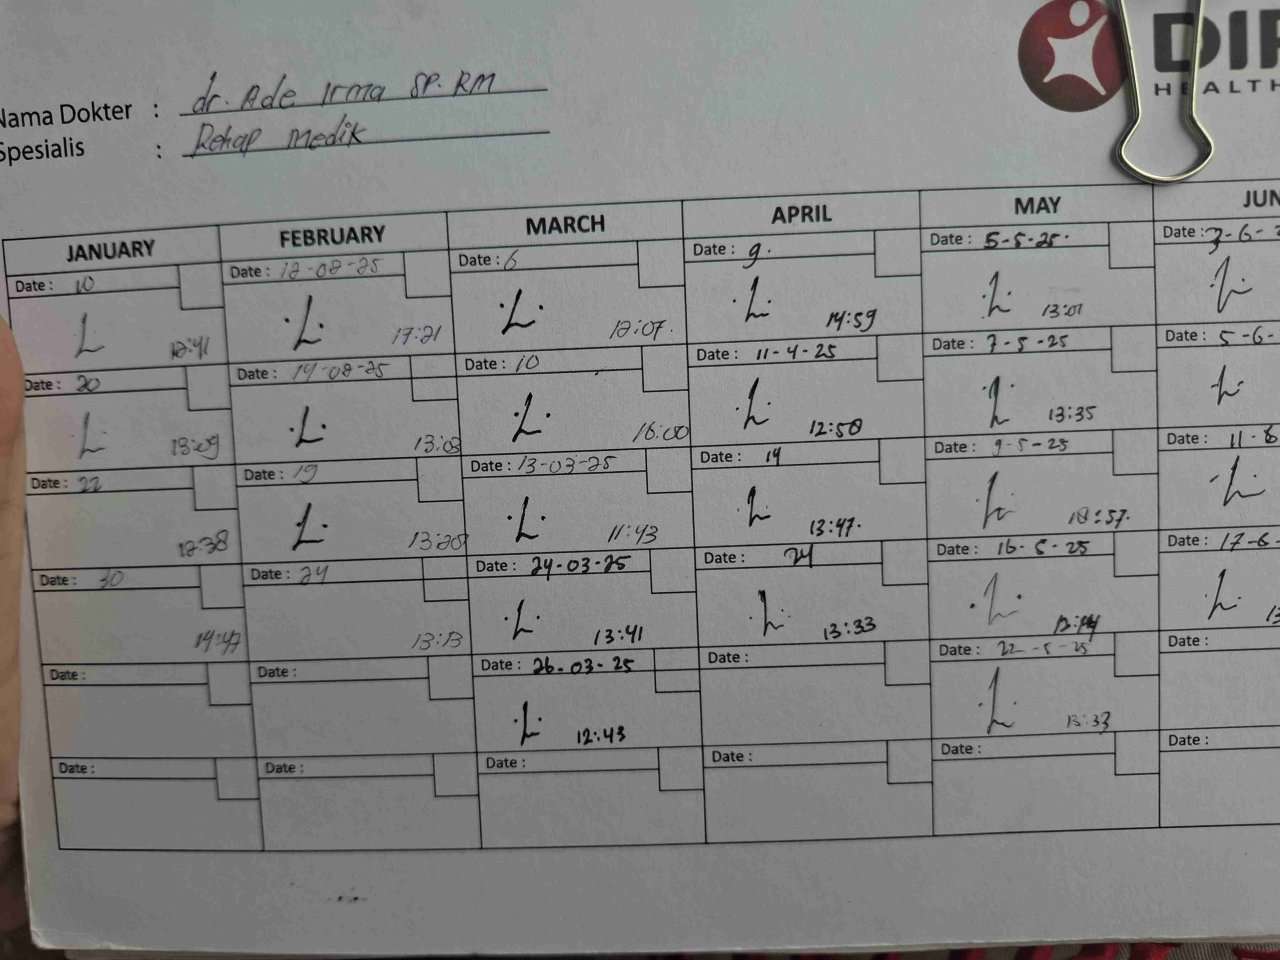 DIP
HEALTH
Nama Dokter : dr. Ade Irma SP. RM
Spesialis : Rehap Medik
JANUARY FEBRUARY MARCH APRIL MAY JUN
Date : 10 Date : 12-02-25 Date : 6 Date : 9. Date : 5-5-25. Date : 3-6-2
12:41 17:21 12:07. 14:59 13:01
Date : 20 Date : 14-02-25 Date : 10 Date : 11-4-25 Date : 7-5-25 Date : 5-6-
13:09 13:03 16:00 12:50 13:35
Date : 22 Date : 19 Date : 13-03-25 Date : 14 Date : 9-5-25 Date : 11-6
12:38 13:20 11:43 13:47. 10:57.
Date : 30 Date : 24 Date : 24-03-25 Date : 24 Date : 16-5-25 Date : 17-6-
14:47 13:13 13:41 13:33 13
Date : Date : Date : 26-03-25 Date : Date : 22-5-25 Date :
12:43 13:33
Date : Date : Date : Date : Date : Date :